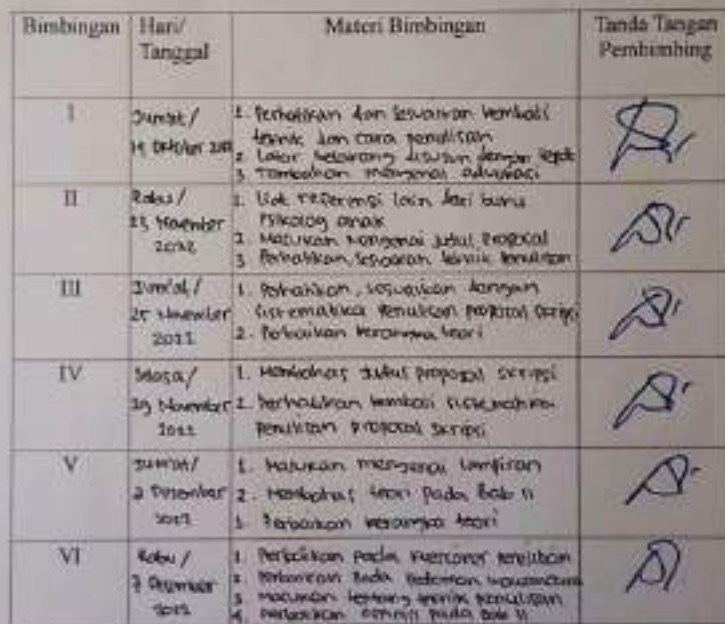 Bimbingan
Hari/
Tanggal
Materi Bimbingan
Tanda Tangan
Pembimbing
I
Jumat/
14 Oktober
1. Perhatikan dan sesuaikan kembali
teknik dan cara penulisan
2. Latar belakang disusun dengan
3. Tambahkan mengenai
II
Rabu/
23 November
2022
1. referensi lain dari buku
Psikolog anak
2. Masukan mengenai judul proposal
3. Perhatikan, sesuaikan teknik penulisan
III
Jum'at/
25 November
2022
1. Perhatikan, sesuaikan dengan
sistematika penulisan proposal skripsi
2. Perbaikan kerangka teori
IV
Selasa/
29 November
2022
1. Membahas judul proposal skripsi
2. Perhatikan kembali sistematika
penulisan proposal skripsi
V
Jum'at/
2 Desember
2022
1. Masukan mengenai lampiran
2. Membahas teori pada Bab II
3. Perbaikan kerangka teori
VI
Rabu/
7 Desember
2022
1. Perbaikan pada kuesioner
2. Perbaikan pada Pedoman
3. Masukan tentang teknik penulisan
4. Perbaikan pada Bab II